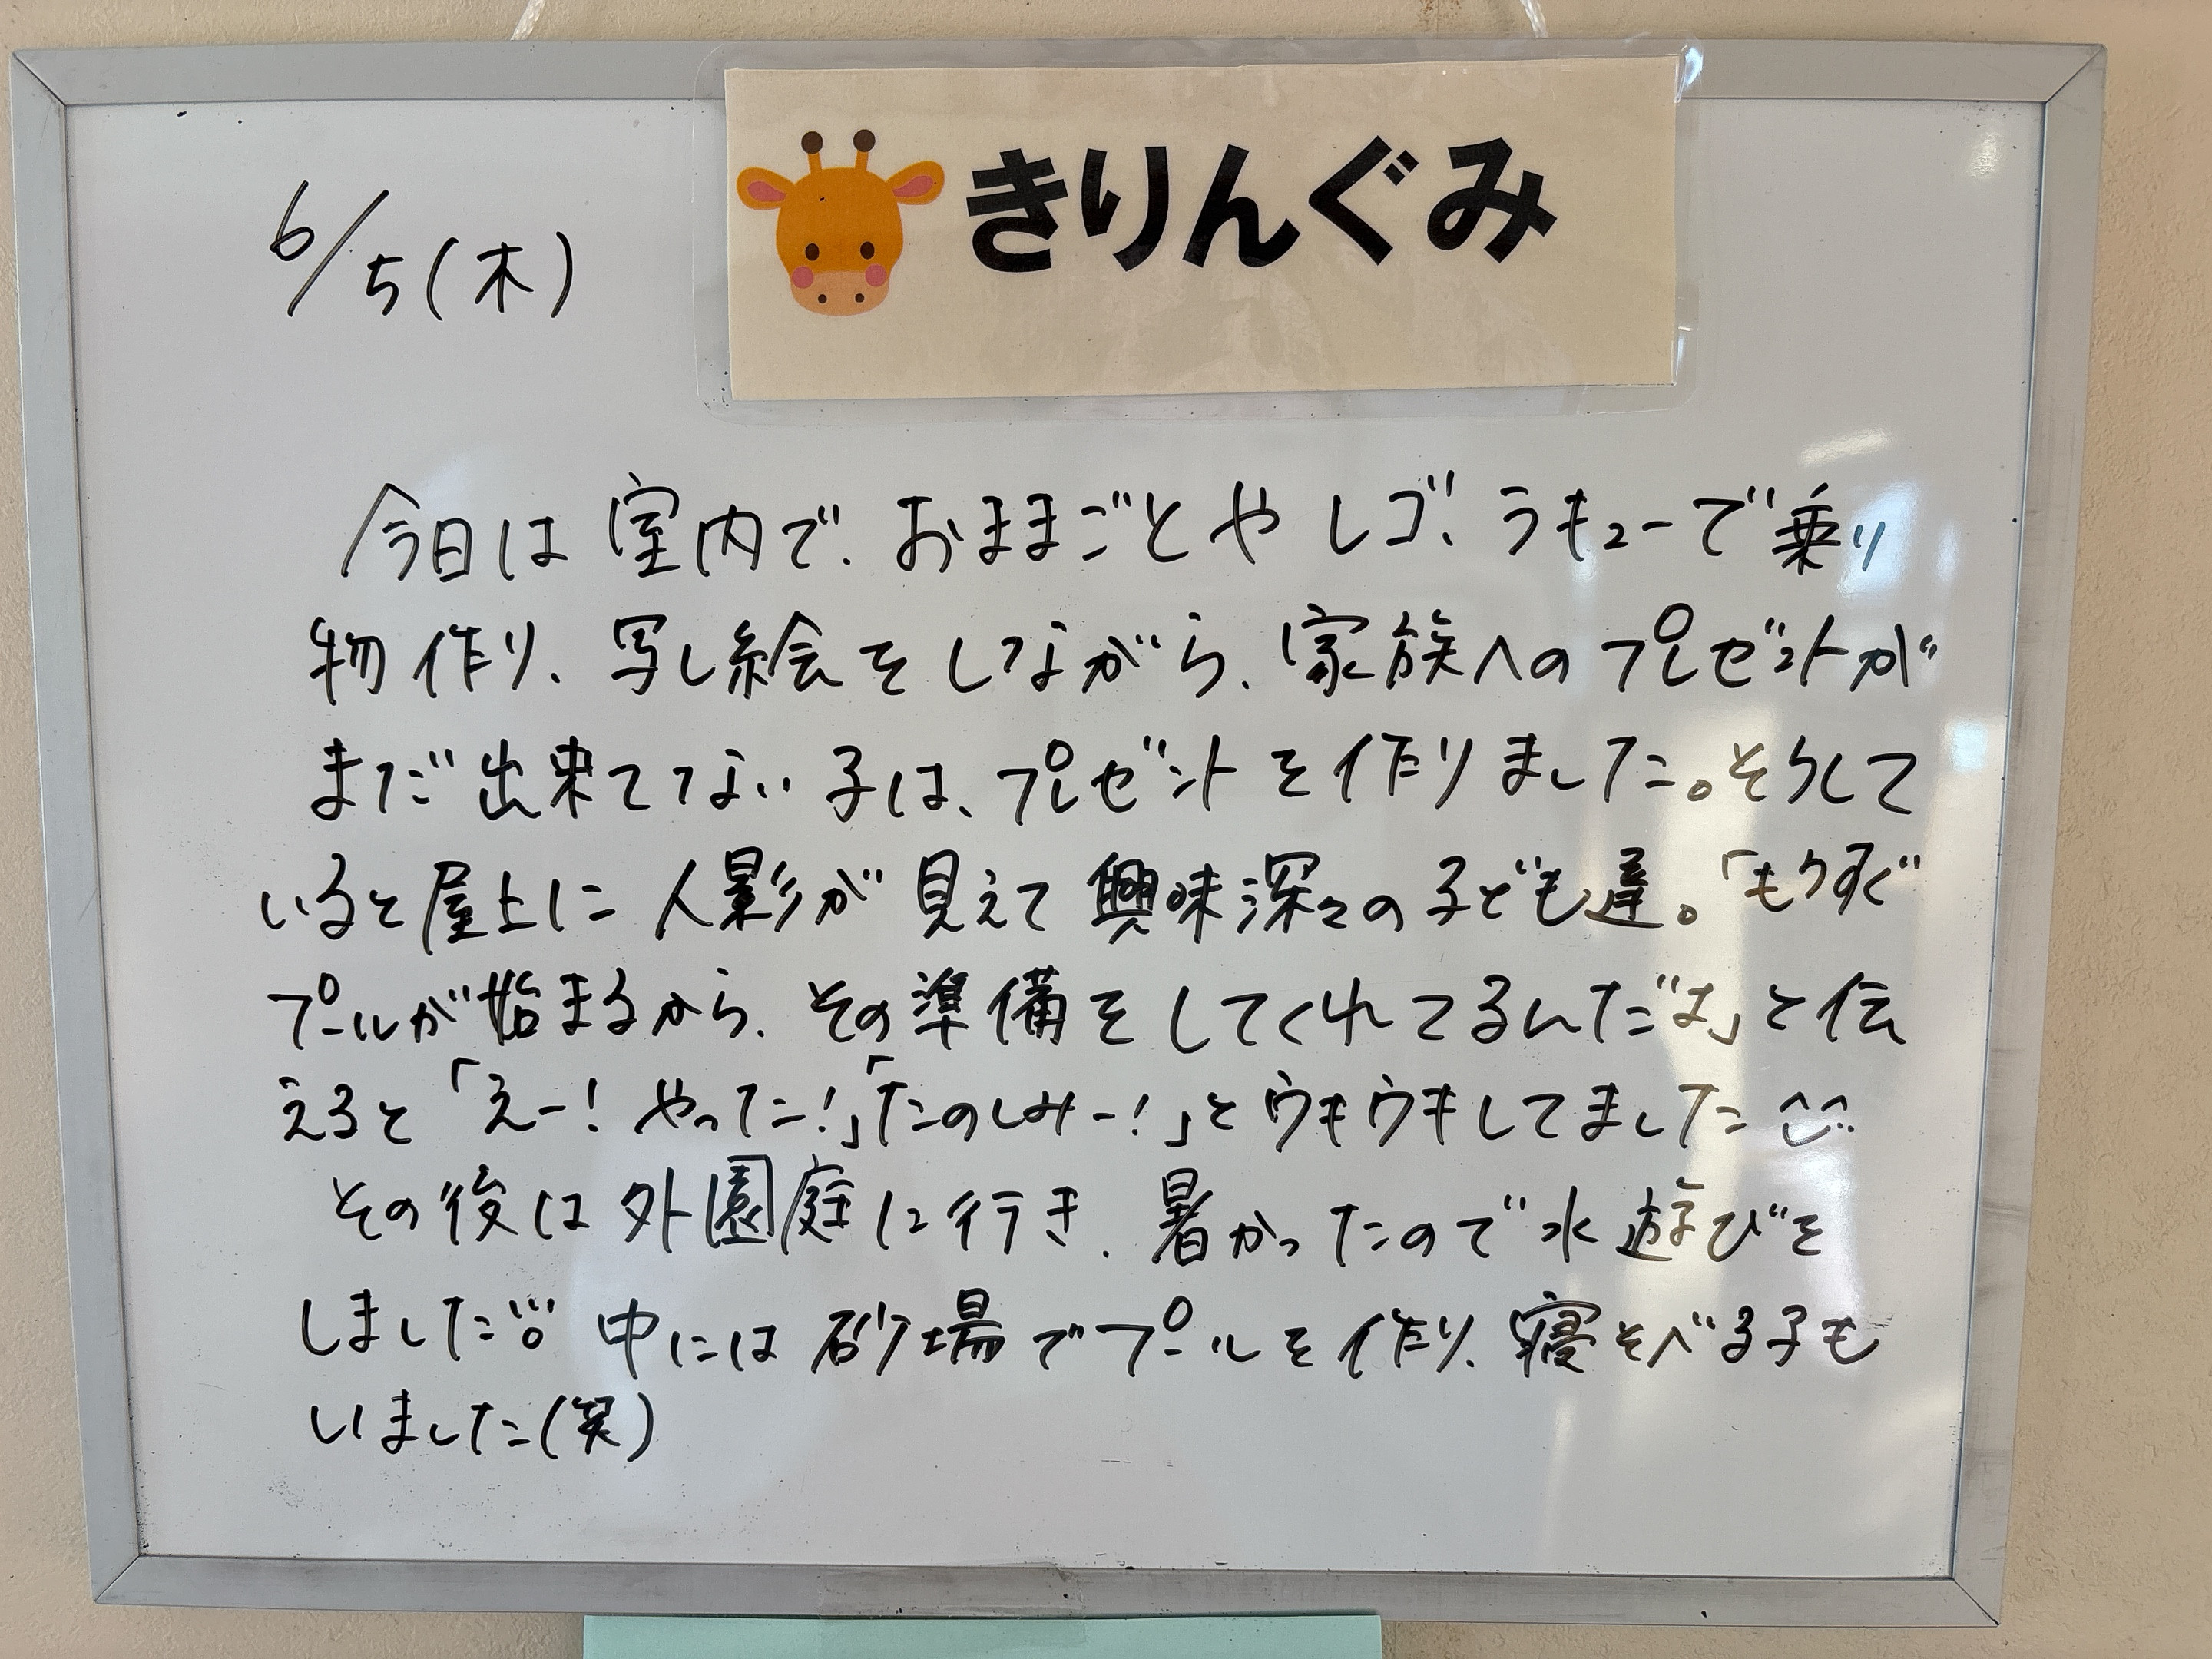 きりんぐみ
6/5(木)
今日は室内で、おままごとやレゴ、ラキューで乗り
物作り、写し絵をしながら、家族へのプレゼントが
まだ出来てない子は、プレゼントを作りました。そうして
いると屋上に人影が見えて興味深々の子ども達。「もうすぐ
プールが始まるから、その準備をしてくれてるんだよ」と伝
えると「えー!やったー!」「たのしみー!」とウキウキしてました^^
その後は外園庭に行き、暑かったので水遊びを
しました!!。中には砂場でプールを作り、寝そべる子も
いました(笑)